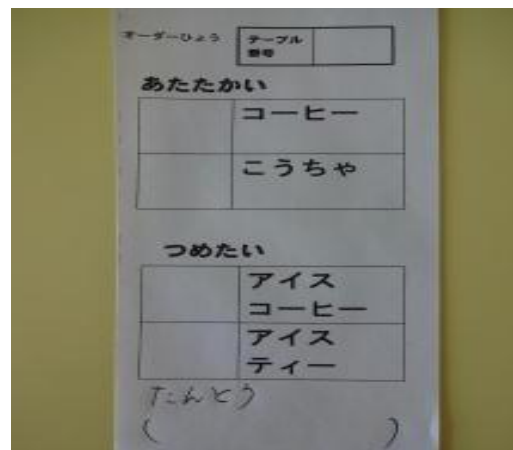 オーダーひょう
テーブル
番号
あたたかい
コーヒー
こうちゃ
つめたい
アイス
コーヒー
アイス
ティー
たんとう
(　　　　　　　)